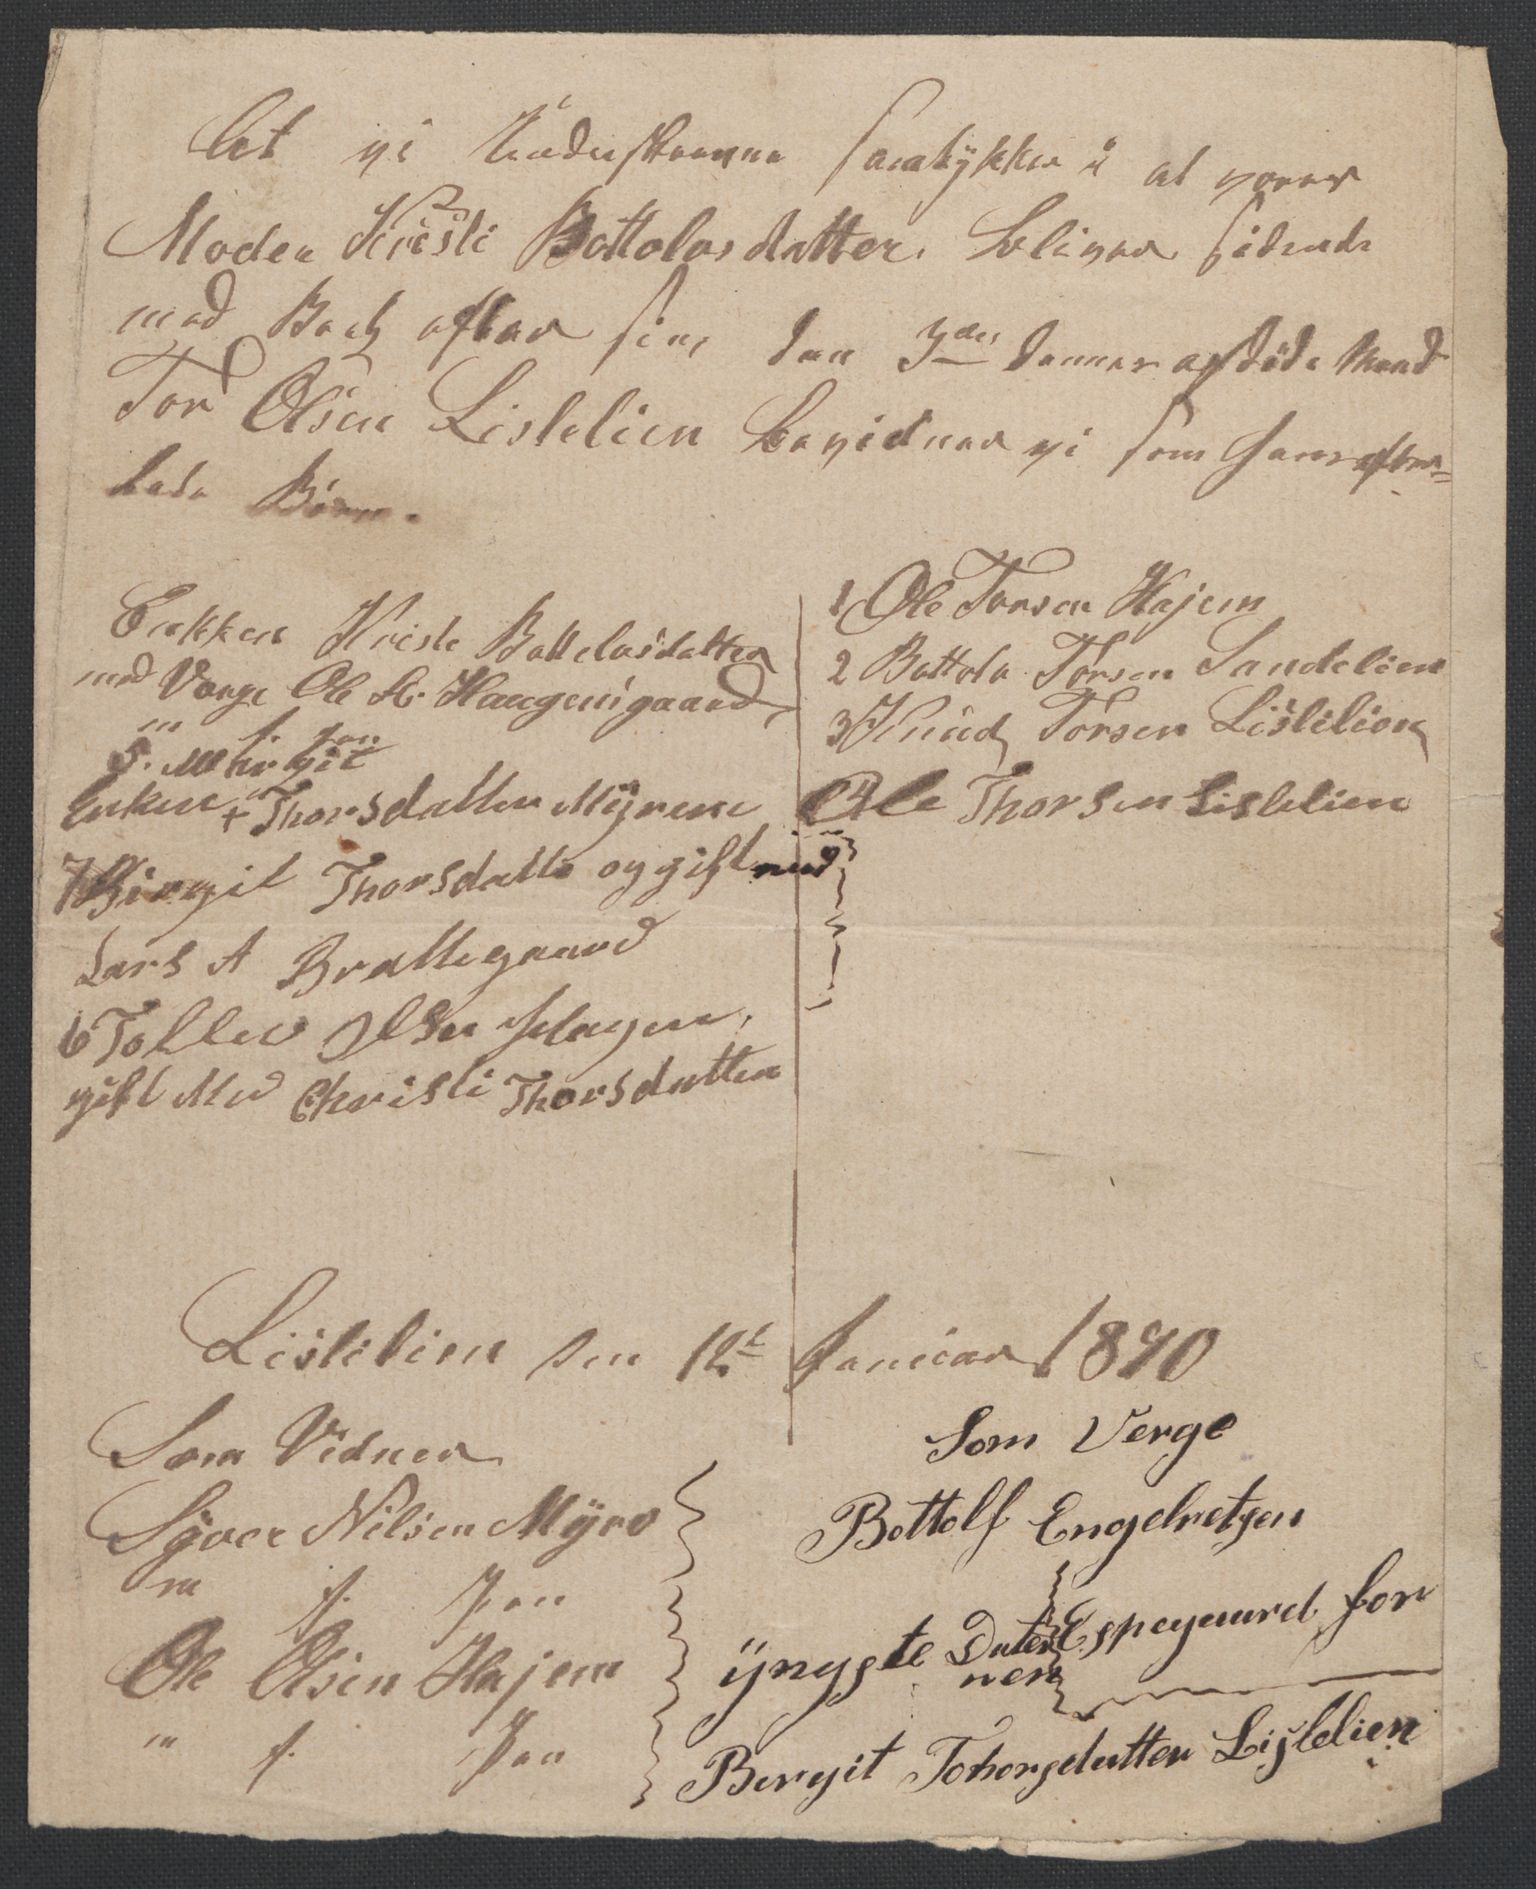 At vi Underskrevne samtykker i at vores
Moder Kristi Bottolvsdatter. bliver sidende
med Boet efter sin den 3den dennes afdöde Mand
Tor Olsen Lislelien bevidner vi som hans efter=
ladte Börn.
Enkken Kriste Bottelvsdatter
med Værge Ole H. Haugensgaard,
m f. pen
5. Mhrgit
Enken + Thorsdatter Myrene
7 Birgit Thorsdatte og gift med
Lars A Brattegaard
6 Tollev Olsen Hagen,
gift Med Christi Thorsdatter
1 Ole Torsen Hajem
2 Bottolv Torsen Sandelien
3 Knud Torsen Lislelien
4 Ole Thorsen Lislelien
Lislelien den 12t Januar 1870
Som Vidner
Syver Nilsen Myro
m f. Pen
Ole Olsen Hajem
m f. Pen
Som Verge
Bottolf Engebretsen
Espegaard for
yngste Dater
nen
Bergit Tohorsdatter Lislelien